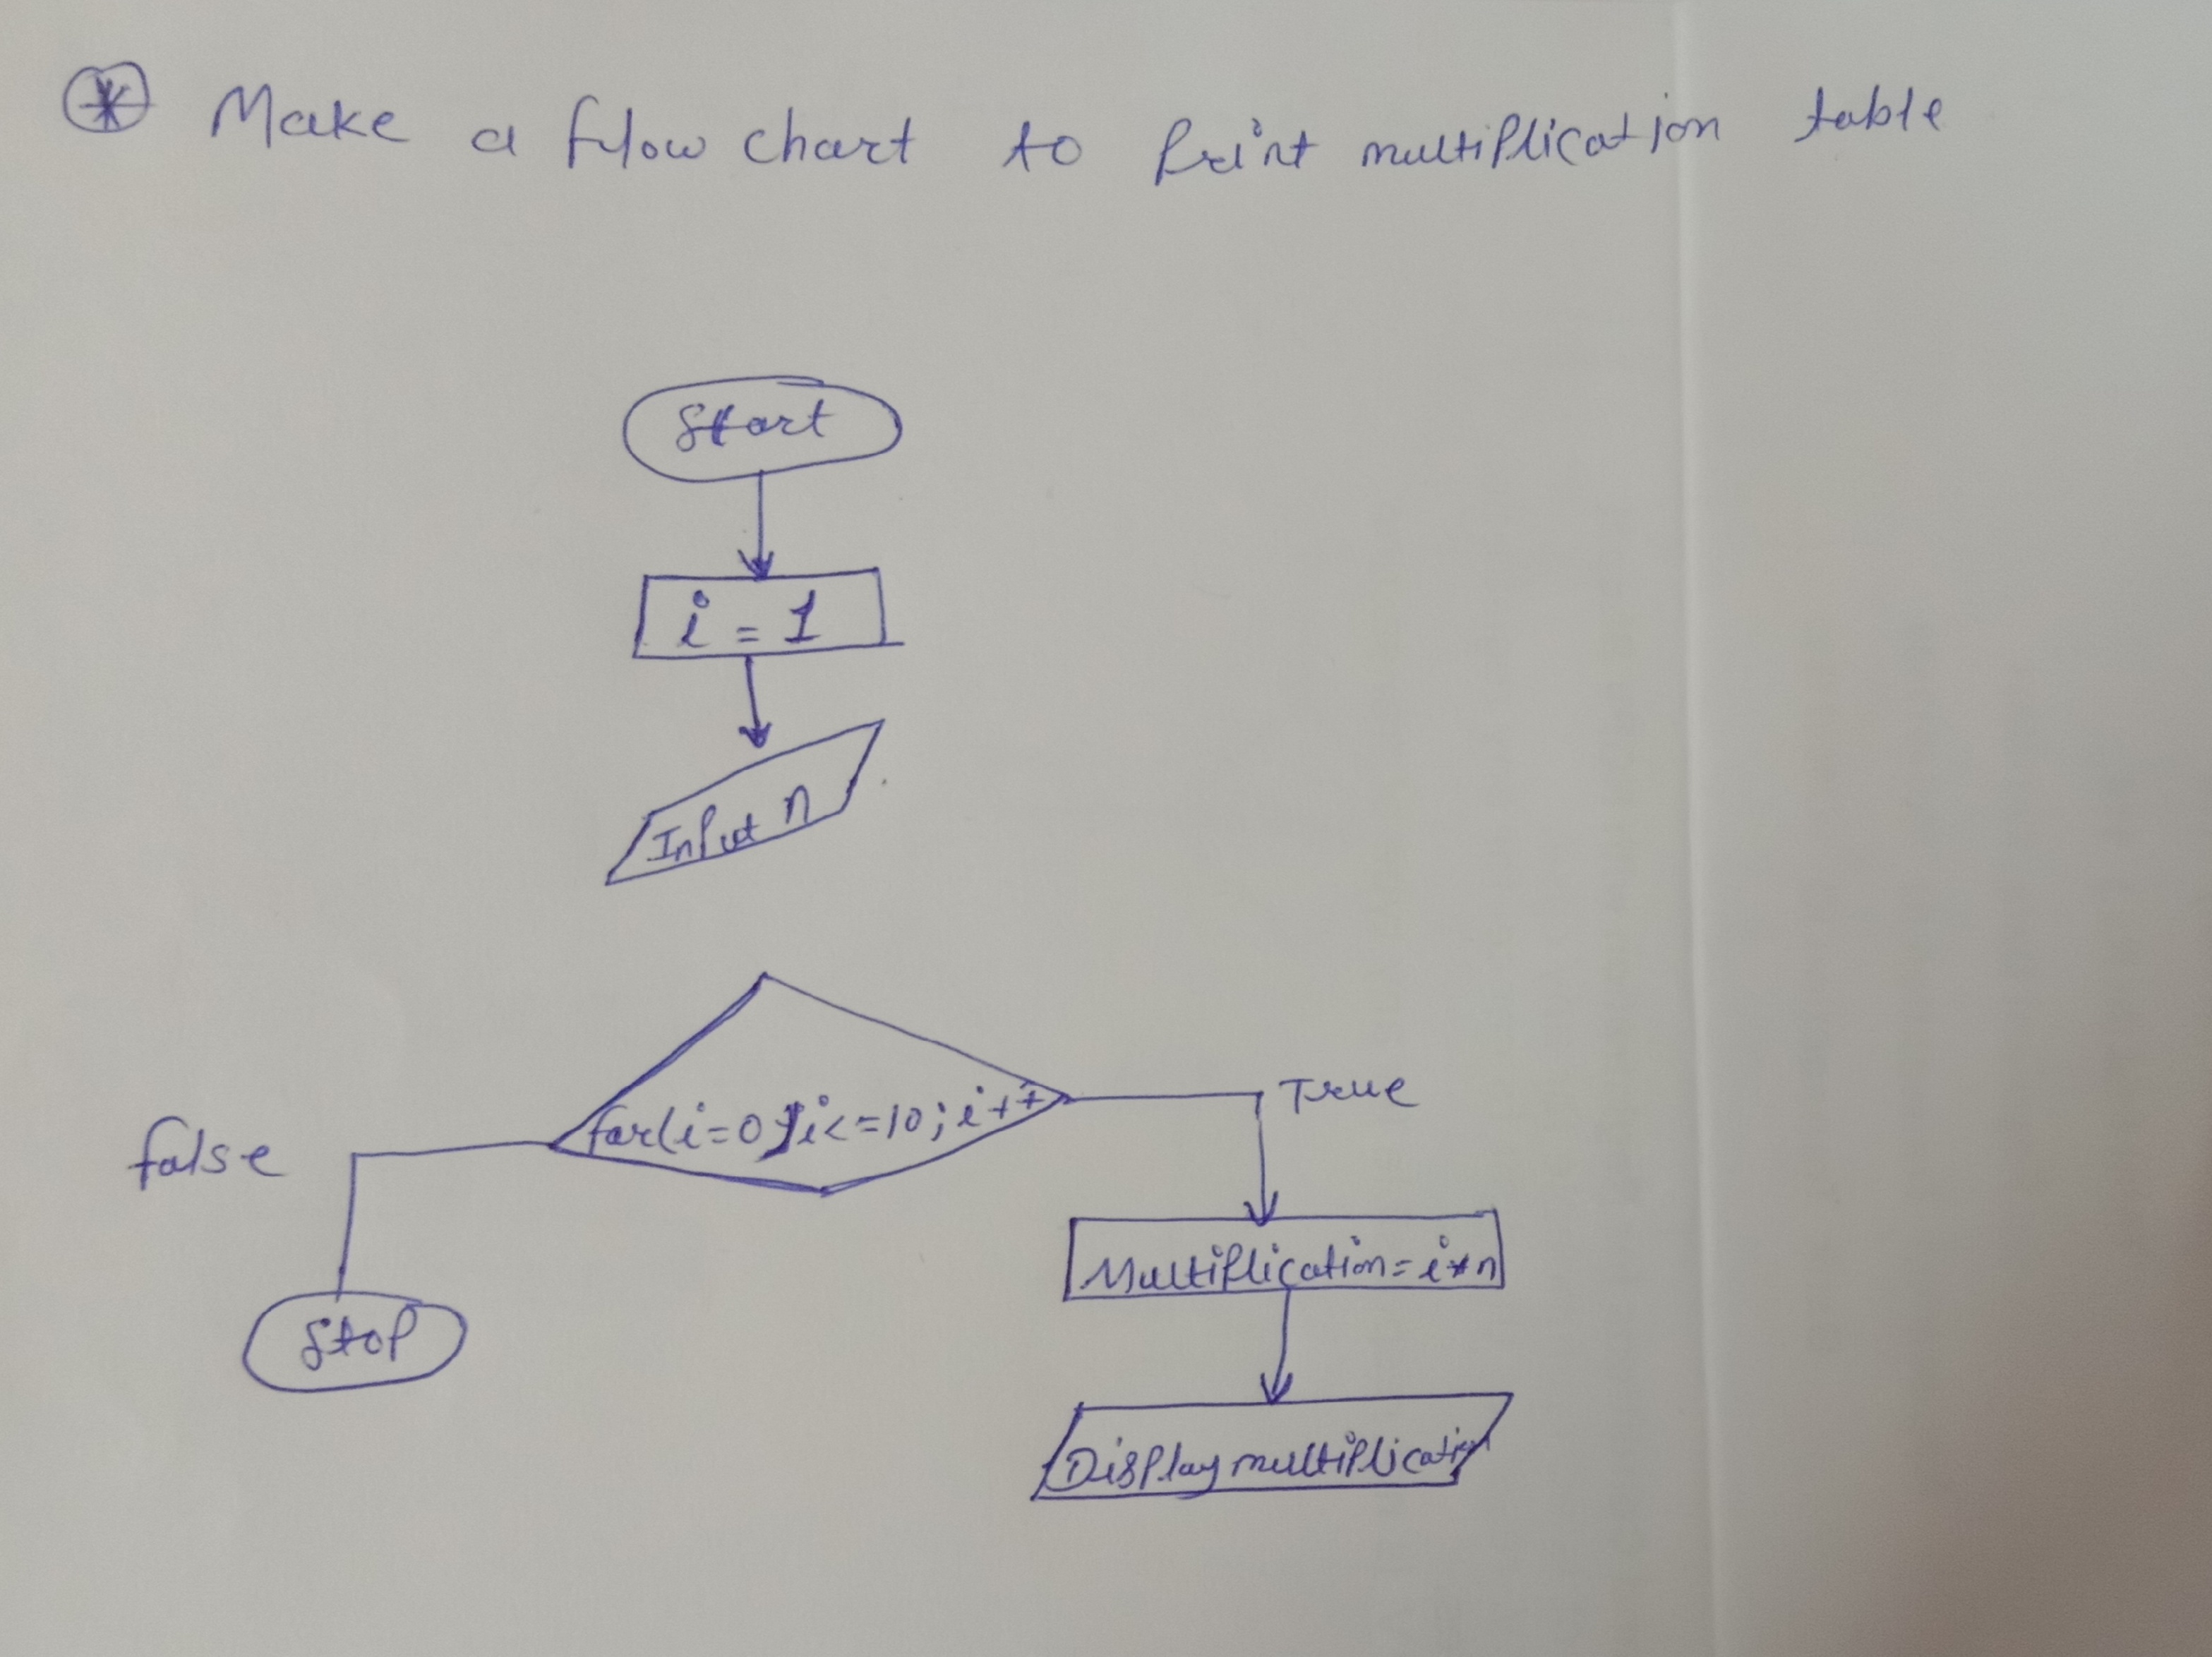 * Make a flow chart to Print multiplication table
Start
i = 1
Input n
for(i=0;i<=10;i++
True
false
Multiplication=i*n
Stop
Display multiplication